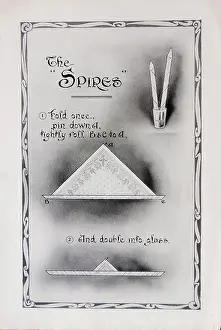 The
"SPIRES"
① Fold once,
pin down A,
tightly roll B&C to A,
A
B
② And double into glass.